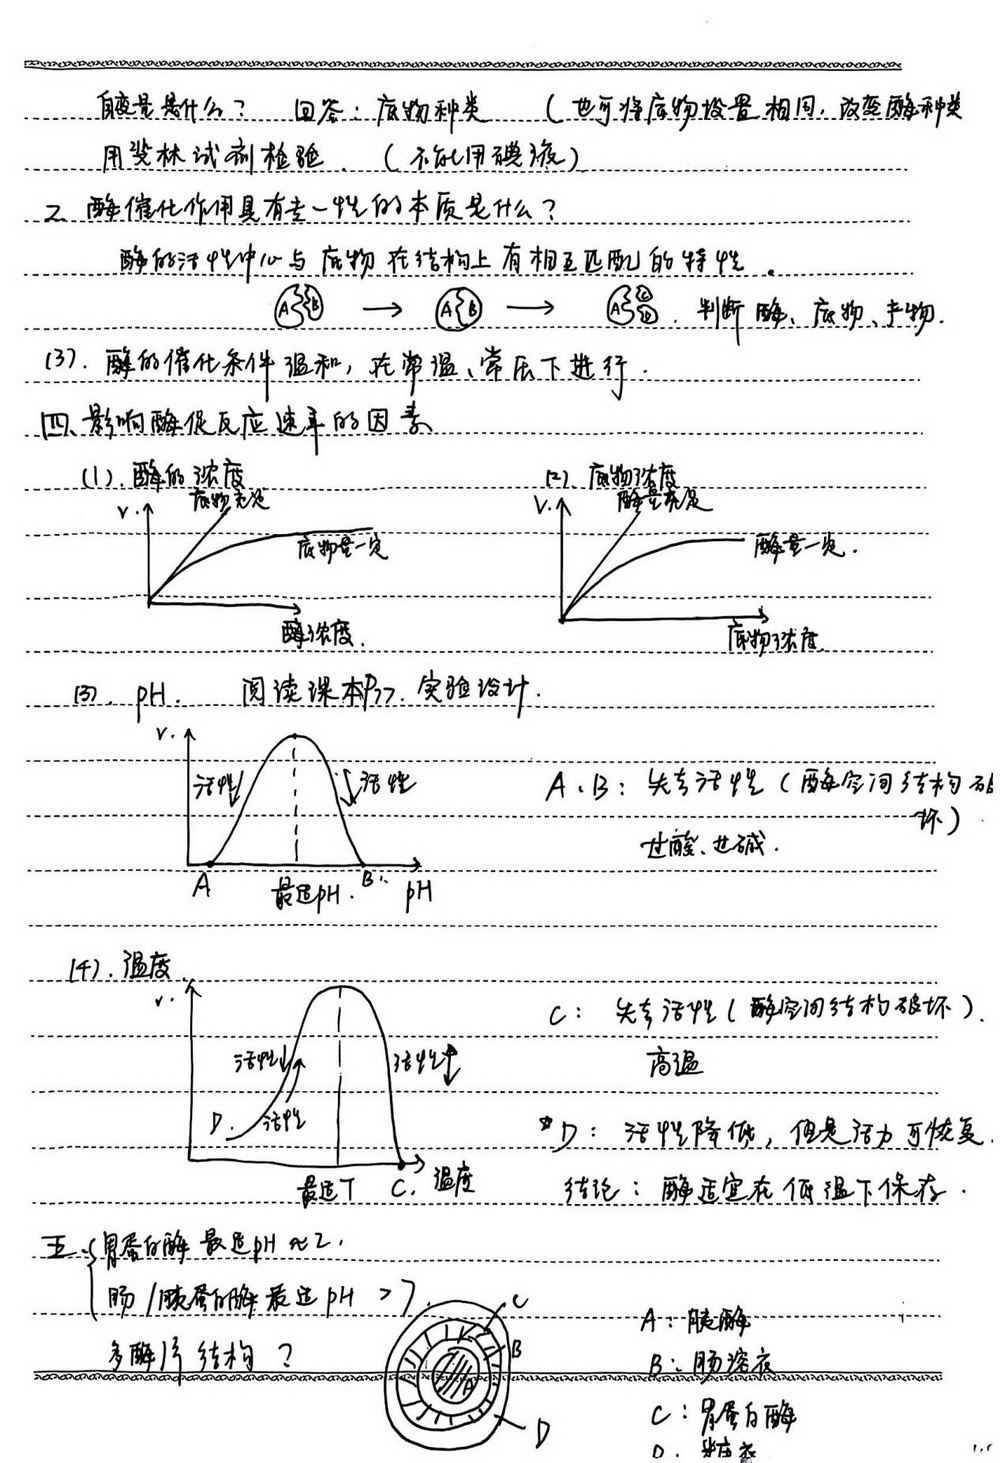 自变量是什么？ 回答：底物种类 （也可将底物设置相同，改变酶种类
用斐林试剂检验 （不能用碘液）
2. 酶催化作用具有专一性的本质是什么？
酶的活性中心与底物在结构上有相互匹配的特性。
A B → A B → A C D. 判断酶、底物、产物.
(3). 酶的催化条件温和，在常温、常压下进行.
四、影响酶促反应速率的因素
(1). 酶的浓度 (2). 底物浓度
V. 底物充足 V. 酶量充足
底物量一定 酶量一定.
酶浓度. 底物浓度.
(3). pH. 阅读课本P77. 实验设计.
V.
活性↓ ↓活性 A、B：失去活性（酶空间结构破
坏）
过酸、过碱.
A 最适pH. B. pH
(4). 温度
V. C：失去活性（酶空间结构破坏）.
活性↓ 活性 高温
D. 活性 *D：活性降低，但是活力可恢复.
最适T C. 温度 结论：酶适宜在低温下保存.
五、胃蛋白酶最适pH≈2.
肠/胰蛋白酶最适pH >7.
C A：胰酶
多酶片结构？ B B：肠溶衣
A C：胃蛋白酶
D D.